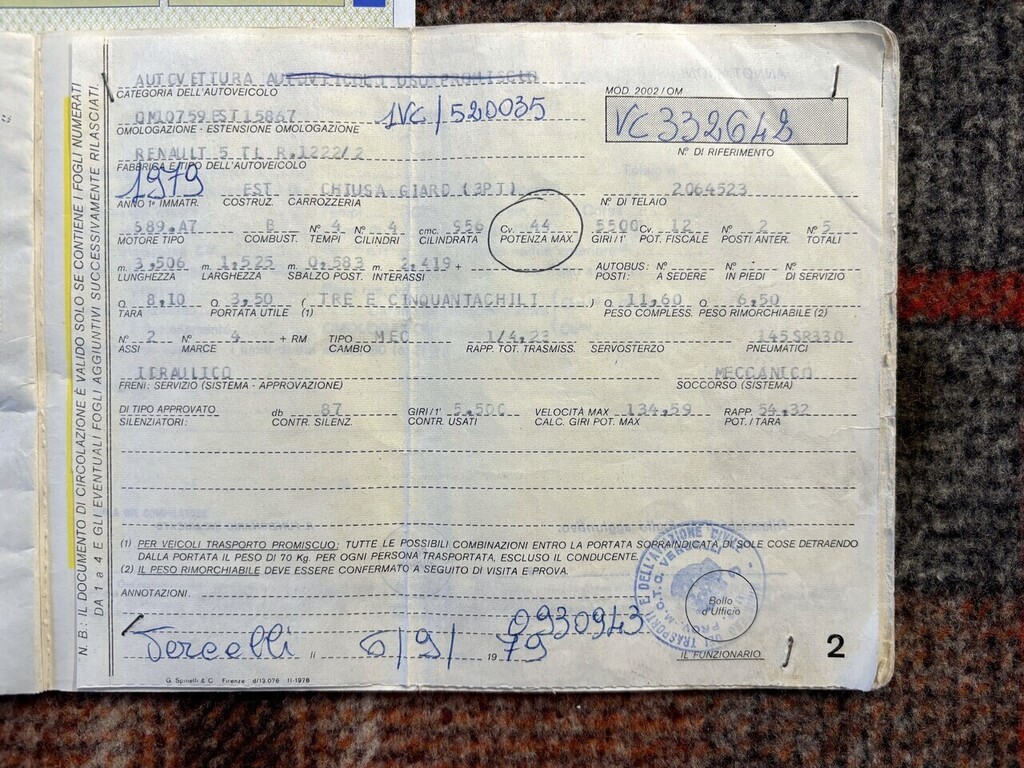 N.B.: IL DOCUMENTO DI CIRCOLAZIONE È VALIDO SOLO SE CONTIENE I FOGLI NUMERATI
DA 1 a 4 E GLI EVENTUALI FOGLI AGGIUNTIVI SUCCESSIVAMENTE RILASCIATI.
AUTOVETTURA AUTOVEICOLO USO PROMISCUO
CATEGORIA DELL'AUTOVEICOLO
MOD. 2002/OM
OM10759 EST15867 1VC/520035
VC332642
OMOLOGAZIONE - ESTENSIONE OMOLOGAZIONE
N° DI RIFERIMENTO
RENAULT 5 TL R.1222/2
FABBRICA E TIPO DELL'AUTOVEICOLO
1979 EST CHIUSA GIARD (3PT) 2064523
ANNO 1ª IMMATR. COSTRUZ. CARROZZERIA N° DI TELAIO
689.A7 B N° 4 N° 4 cmc. 956 Cv. 44 5500 12 N° 2 N° 5
MOTORE TIPO COMBUST. TEMPI CILINDRI CILINDRATA POTENZA MAX. GIRI/1' POT. FISCALE POSTI ANTER. TOTALI
m. 3,506 m. 1,525 m. 0,583 m. 2,419 + AUTOBUS: N° N° N°
LUNGHEZZA LARGHEZZA SBALZO POST. INTERASSI POSTI: A SEDERE IN PIEDI DI SERVIZIO
Q. 8,10 Q. 3,50 ( TRE E CINQUANTACHILI ) Q. 11,60 Q. 6,50
TARA PORTATA UTILE (1) PESO COMPLESS. PESO RIMORCHIABILE (2)
N° 2 N° 4 + RM TIPO MEC 1/4,23 145SR330
ASSI MARCE CAMBIO RAPP. TOT. TRASMISS. SERVOSTERZO PNEUMATICI
IDRAULICO MECCANICO
FRENI: SERVIZIO (SISTEMA - APPROVAZIONE) SOCCORSO (SISTEMA)
DI TIPO APPROVATO db 87 GIRI/1' 5.500 VELOCITÀ MAX 134,59 RAPP. 54,32
SILENZIATORI: CONTR. SILENZ. CONTR. USATI CALC. GIRI POT. MAX POT./TARA
(1) PER VEICOLI TRASPORTO PROMISCUO: TUTTE LE POSSIBILI COMBINAZIONI ENTRO LA PORTATA SOPRAINDICATA DI SOLE COSE DETRAENDO
DALLA PORTATA IL PESO DI 70 Kg. PER OGNI PERSONA TRASPORTATA, ESCLUSO IL CONDUCENTE.
(2) IL PESO RIMORCHIABILE DEVE ESSERE CONFERMATO A SEGUITO DI VISITA E PROVA.
ANNOTAZIONI:
Bollo
d'Ufficio
0930943
Vercelli li 6/9/ 1979
IL FUNZIONARIO
2
G. Spinelli & C. Firenze d/13.076 II-1978